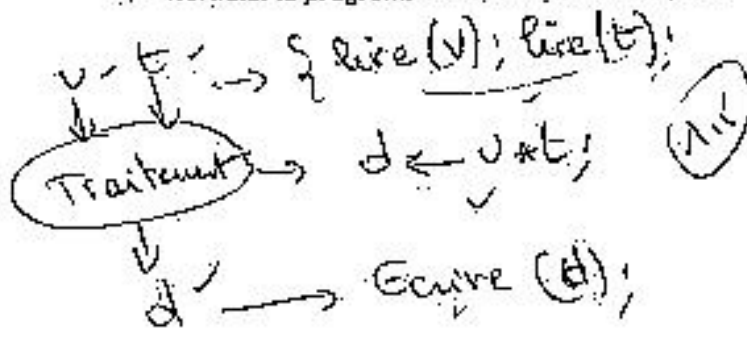 v t → { lire(v); lire(t);
Traitement → d ← v*t;
d → Ecrire (d);